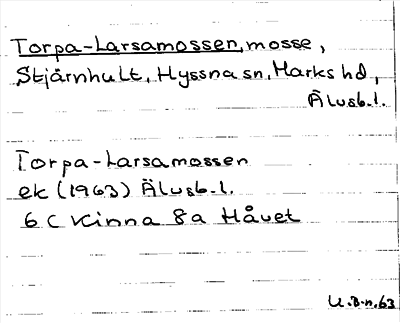 Torpa-Larsamossen, mosse,
Stjärnhult, Hyssna sn, Marks hd,
Älvsb.l.
Torpa-Larsamossen
ek (1963) Älvsb.l.
6 C Kinna 8a Håvet
U.B-n.63